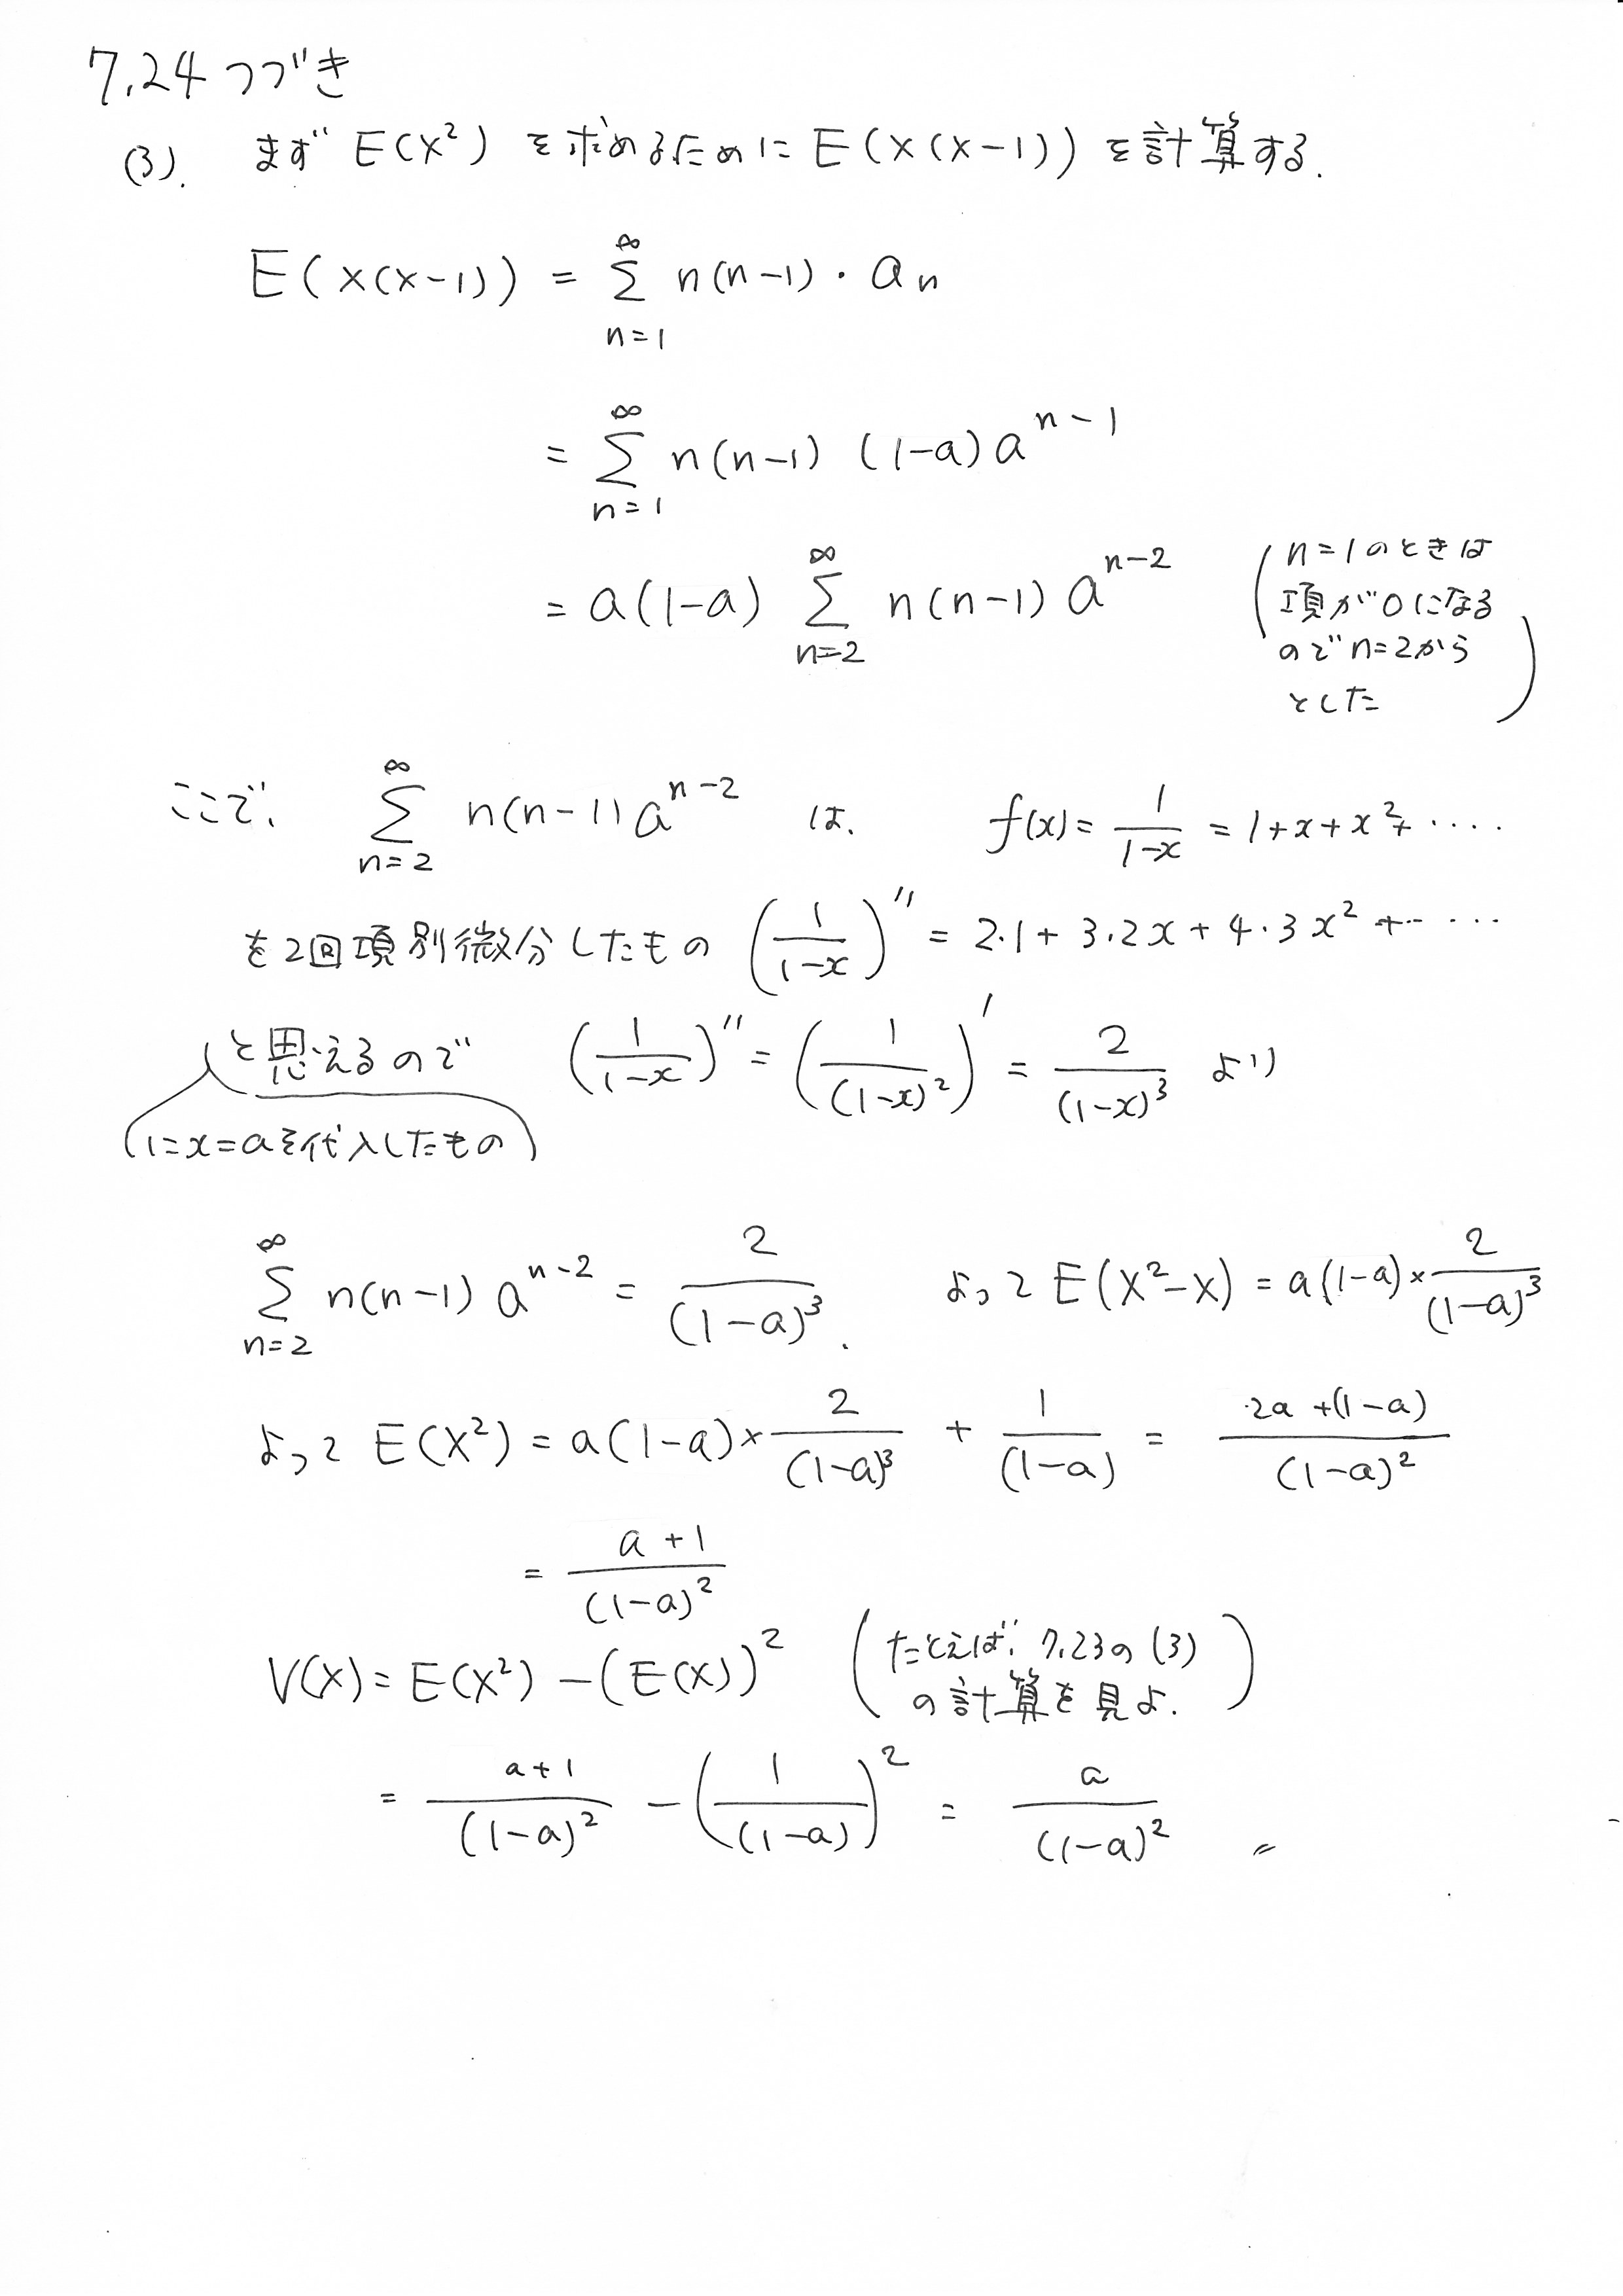 7.24 つづき
(3). まず E(X²) を求めるために E(X(X-1)) を計算する.
E(X(X-1)) = Σ_{n=1}^{∞} n(n-1)・a_n
= Σ_{n=1}^{∞} n(n-1) (1-a) a^{n-1}
= a(1-a) Σ_{n=2}^{∞} n(n-1) a^{n-2}
(n=1のときは
項が0になる
のでn=2から
とした)
ここで、 Σ_{n=2}^{∞} n(n-1) a^{n-2} は、 f(x) = 1/(1-x) = 1+x+x²+ ‥‥
を2回項別微分したもの (1/(1-x))'' = 2・1 + 3・2x + 4・3x² + ‥ ‥
と思えるので (1/(1-x))'' = (1/(1-x)²)' = 2/(1-x)³ より
(にx=aを代入したもの)
Σ_{n=2}^{∞} n(n-1) a^{n-2} = 2/(1-a)³. よって E(X²-X) = a(1-a) × 2/(1-a)³
よって E(X²) = a(1-a) × 2/(1-a)³ + 1/(1-a) = (2a+(1-a))/(1-a)²
= (a+1)/(1-a)²
V(X) = E(X²) - (E(X))² (たとえば、7.23の(3)
の計算を見よ.)
= (a+1)/(1-a)² - (1/(1-a))² = a/(1-a)² 〃